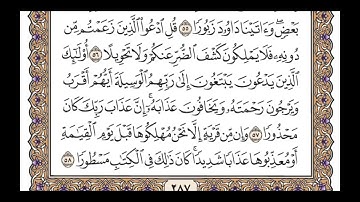 بَعْضٍ وَءَاتَيْنَا دَاوُۥدَ زَبُورًا ٥٥ قُلِ ٱدْعُوا۟ ٱلَّذِينَ زَعَمْتُم مِّن
دُونِهِۦ فَلَا يَمْلِكُونَ كَشْفَ ٱلضُّرِّ عَنكُمْ وَلَا تَحْوِيلًا ٥٦ أُو۟لَٰٓئِكَ
ٱلَّذِينَ يَدْعُونَ يَبْتَغُونَ إِلَىٰ رَبِّهِمُ ٱلْوَسِيلَةَ أَيُّهُمْ أَقْرَبُ
وَيَرْجُونَ رَحْمَتَهُۥ وَيَخَافُونَ عَذَابَهُۥٓ إِنَّ عَذَابَ رَبِّكَ كَانَ
مَحْذُورًا ٥٧ وَإِن مِّن قَرْيَةٍ إِلَّا نَحْنُ مُهْلِكُوهَا قَبْلَ يَوْمِ ٱلْقِيَٰمَةِ
أَوْ مُعَذِّبُوهَا عَذَابًا شَدِيدًا كَانَ ذَٰلِكَ فِى ٱلْكِتَٰبِ مَسْطُورًا ٥٨
٢٨٧